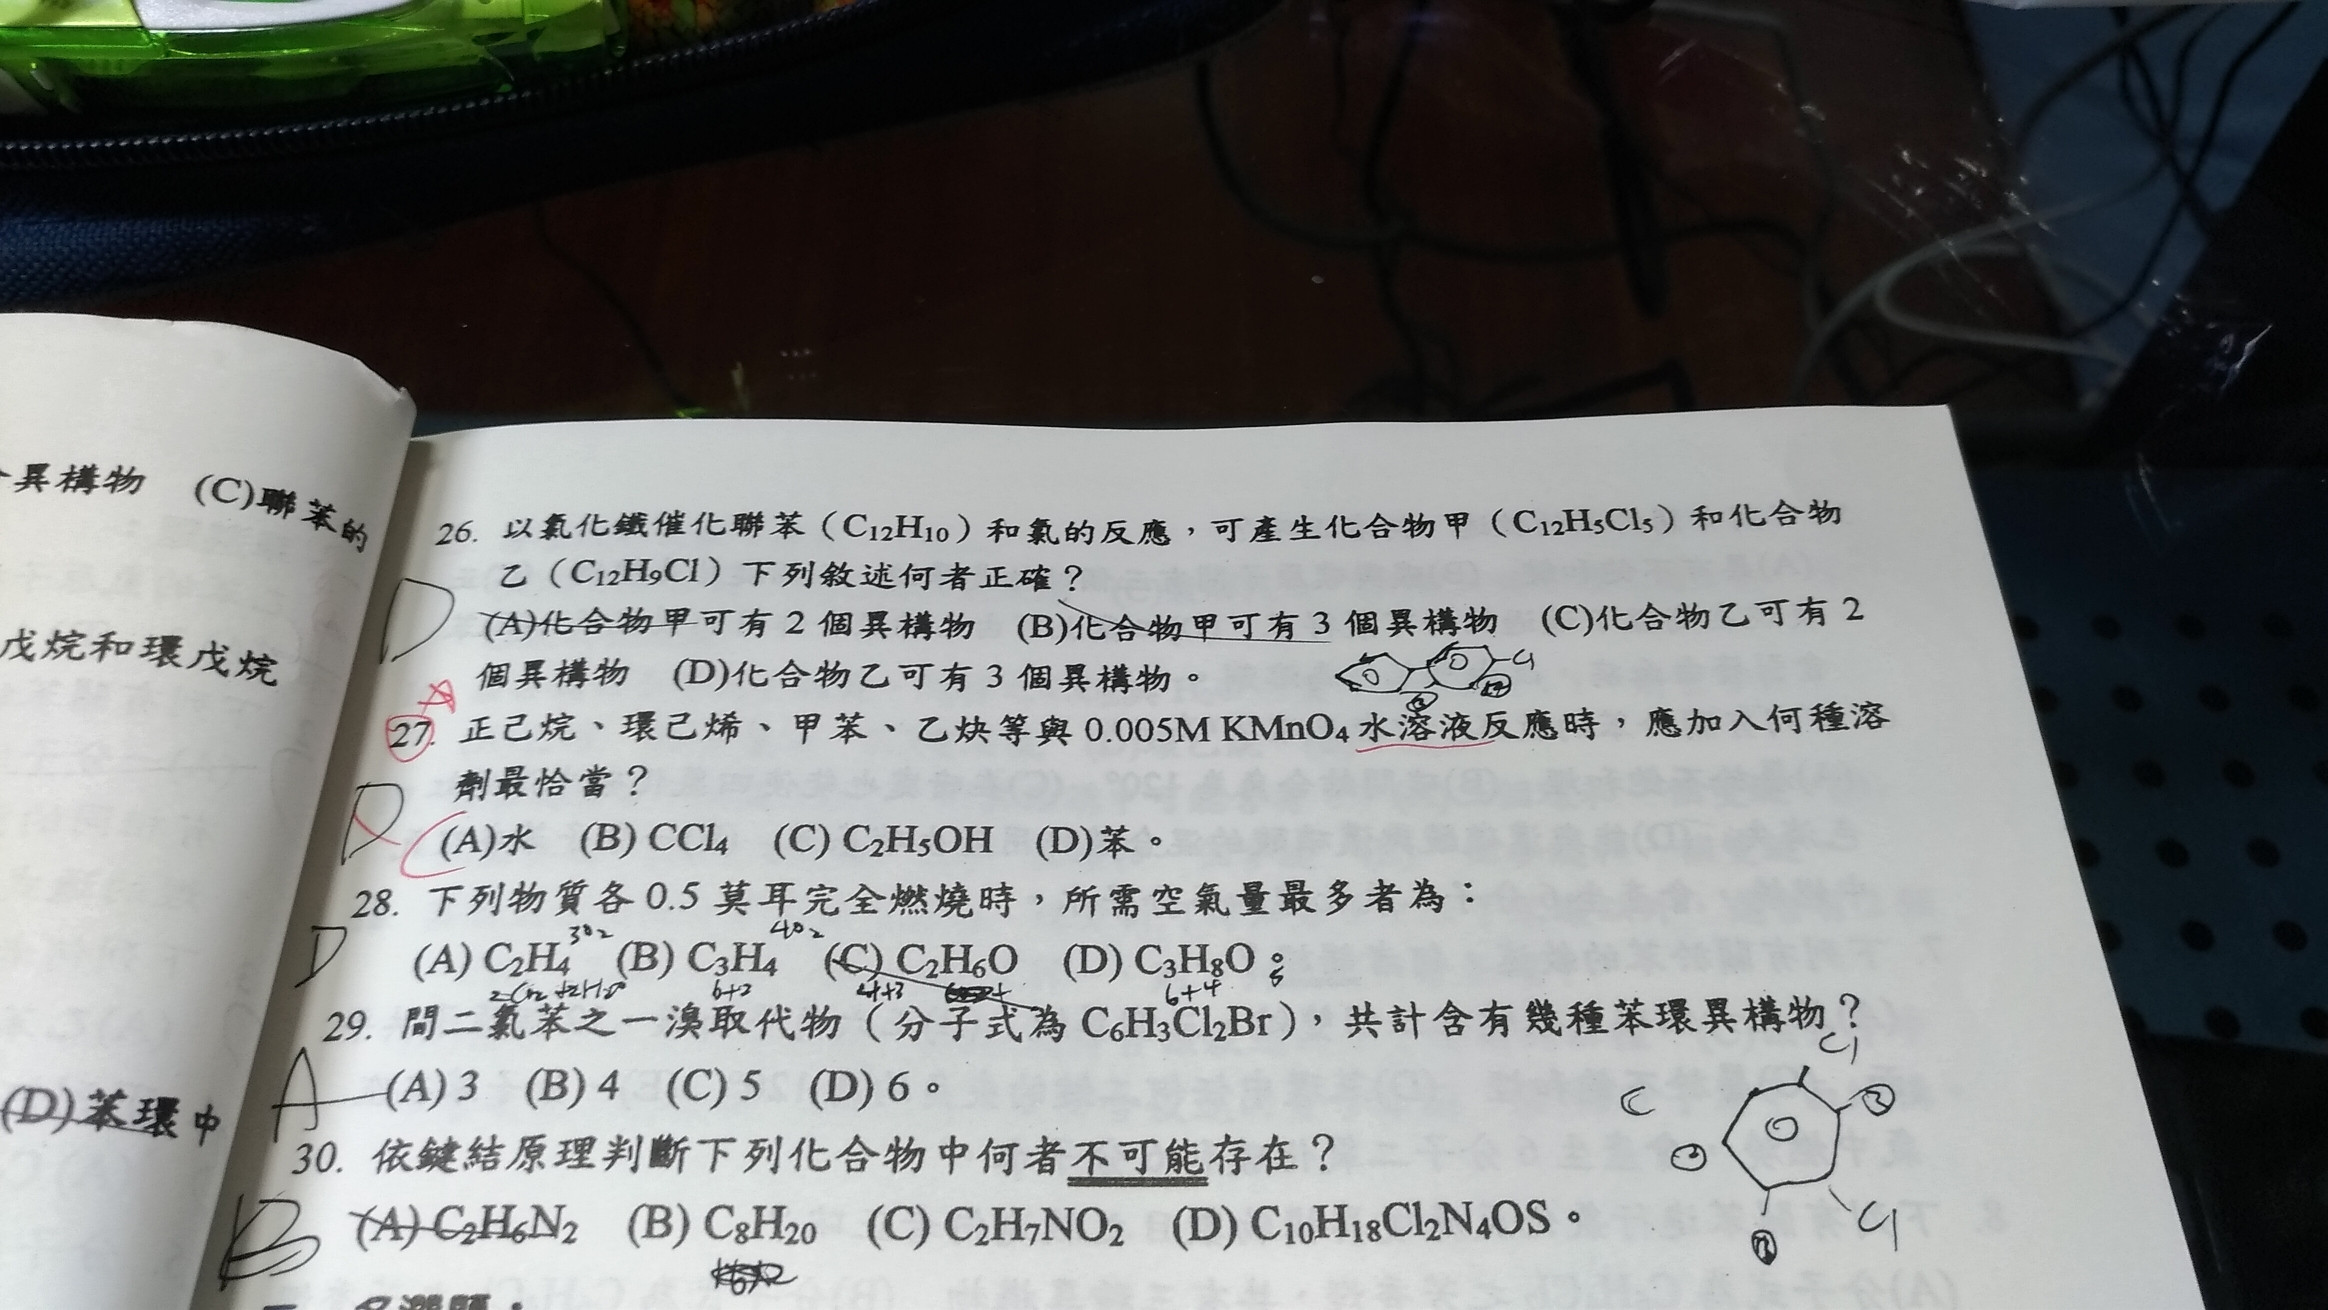 異構物 (C)聯苯的
戊烷和環戊烷
(D)苯環中
26. 以氯化鐵催化聯苯（C₁₂H₁₀）和氯的反應，可產生化合物甲（C₁₂H₅Cl₅）和化合物
乙（C₁₂H₉Cl）下列敘述何者正確？
D
(A)化合物甲可有 2 個異構物 (B)化合物甲可有 3 個異構物 (C)化合物乙可有 2
個異構物 (D)化合物乙可有 3 個異構物。
Cl
27. 正己烷、環己烯、甲苯、乙炔等與 0.005M KMnO₄ 水溶液反應時，應加入何種溶
劑最恰當？
D
(A)水 (B) CCl₄ (C) C₂H₅OH (D)苯。
28. 下列物質各 0.5 莫耳完全燃燒時，所需空氣量最多者為：
3O₂ 4O₂
D (A) C₂H₄ (B) C₃H₄ (C) C₂H₆O (D) C₃H₈O。
2CO₂+2H₂O 6+2 4+3 6+4
29. 間二氯苯之一溴取代物（分子式為 C₆H₃Cl₂Br），共計含有幾種苯環異構物？
A (A) 3 (B) 4 (C) 5 (D) 6。
Cl
C
30. 依鍵結原理判斷下列化合物中何者不可能存在？
B (A) C₂H₆N₂ (B) C₈H₂₀ (C) C₂H₇NO₂ (D) C₁₀H₁₈Cl₂N₄OS。
Cl